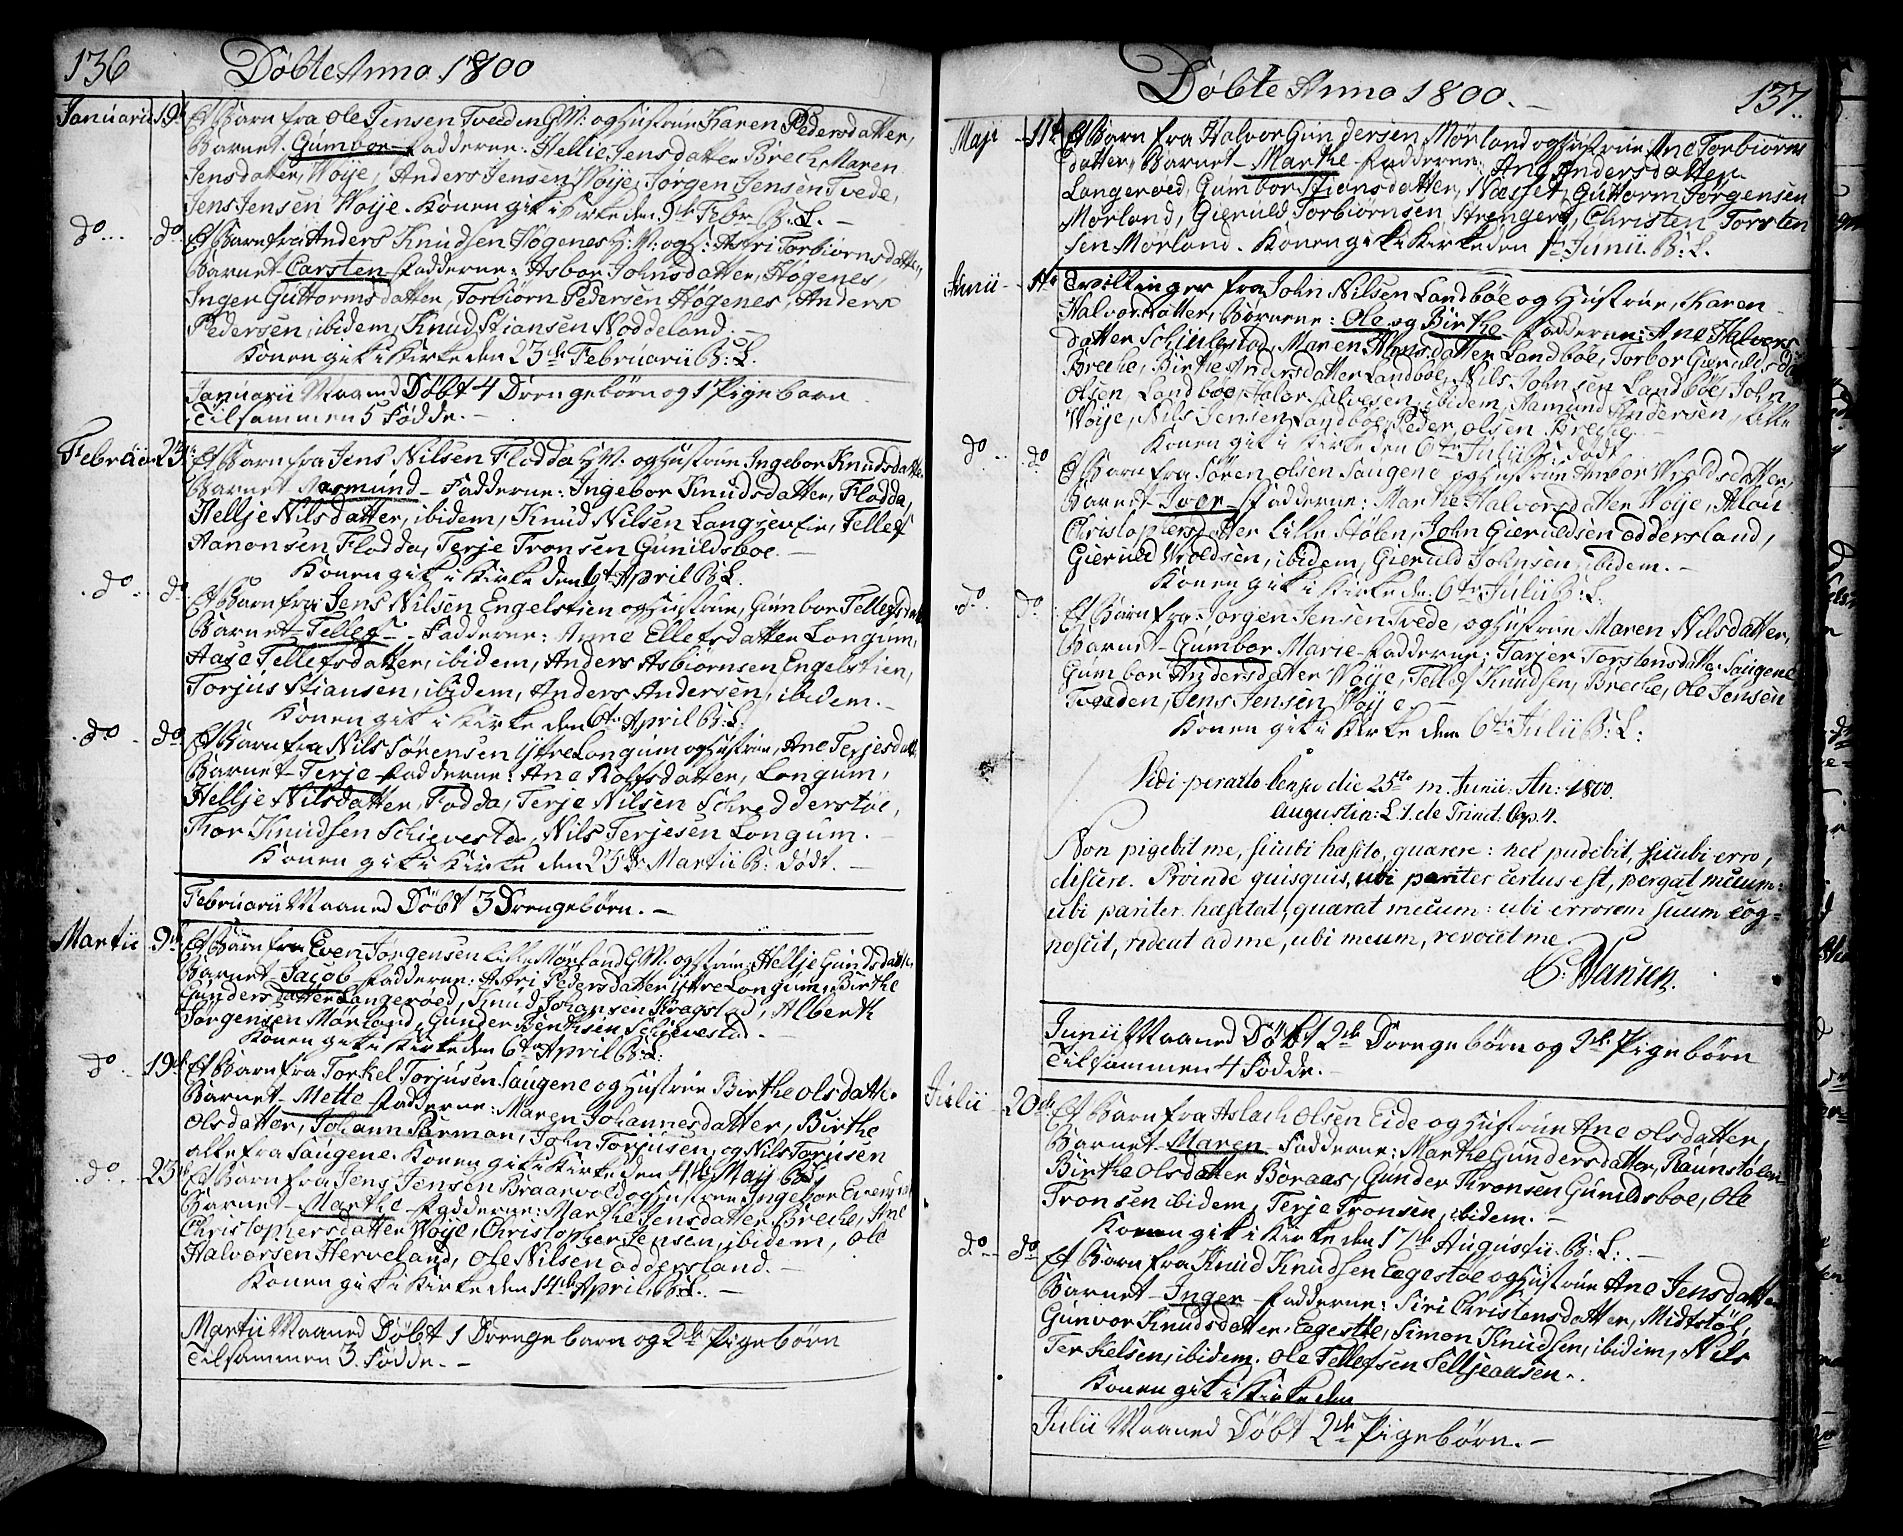 136
Döbte Anno 1800
Januarii 19de Et Barn fra Ole Jensen Tveden G.M: og Hustrue Karen Pedersdatter,
Barnet Gumbor - Fadderne: Hellie Jensdatter Breche, Maren
Jensdatter, Woije, Anders Jensen Woije, Jørgen Jensen Tvede,
Jens Jensen Woije. Konen gik i Kirke den 9de Febr. B: L. -
do do Et Barn fra Anders Knudsen Høgenes H: M: og H: Astri Torbiørnsdatter,
Barnet Carsten - Fadderne: Asbor Johnsdatter, Høgenes,
Inger Guttormsdatter, Torbiørn Pedersen Høgenes, Anders
Pedersen, ibidem, Knud Stiansen Noddeland. -
Konen gik i Kirke den 23de Februarii B: L.
Januarii Maaned Döbt 4 Drengebørn og 1 Pigebarn
Tilsammen 5 Födde. -
Februarii 23de Et Barn fra Jens Nilsen Flodda H: M: og Hustrue Ingebor Knudsdatter
Barnet Aasmund - Fadderne: Ingebor Knudsdatter, Flodda,
Hellje Nilsdatter, ibidem, Knud Nilsen Langjevein, Tellef
Aanonsen Flodda, Terje Tronsen Gunildsboe. -
Konen gik i Kirke den 6te April B: L.
do do Et Barn fra Jens Nilsen Engelstien og Hustrue, Gumbor Tellefsdatter
Barnet Tellef - Fadderne: Anne Ellefsdatter Longum,
Aase Tellefsdatter, ibidem, Anders Asbiørnsen Engelstien,
Torjus Stiansen, ibidem, Anders Andersen, ibidem. -
Konen gik i Kirke den 6te April B: L:
do do Et Barn fra Nils Sørensen Yttre Longum og Hustrue, Ane Terjesdatt.
Barnet Terje - Fadderne: Ane Rolfsdatter, Longum,
Hellje Nilsdatter, Fodda, Terje Nilsen Schredderstøe,
Thor Knudsen Schievestad, Nils Terjesen Longum. -
Konen gik i Kirke den 23de Martii B: Födt. -
Februarii Maaned Döbt 3 Drengebørn. -
Martii 9de Et Barn fra Even Jørgensen Lille Mørland G.M: og Hustrue: Hellje Gundsdatter,
Barnet Jacob - Fadderne: Astri Pedersdatter Yttre Longum, Birthe
Gundersdatter Langerøed, Knud Johansen Kragstad, Alberth
Jørgensen Mørland, Gunder Bentsen Schievestad. -
Konen gik i Kirke den 6te April B: L:
do 19de Et Barn fra Torkel Torjusen Saugene og Hustrue Birthe Olsdatte.
Barnet - Mette - Fadderne: Maren Johannesdatter, Birthe
Olsdatter, Johann Parman, John Torjusen, og Nils Torjusen
alle fra Saugene. Konen gik i Kirke den 4de Maij B: L.
do 23de Et Barn fra Jens Jensen Braarvold og Hustrue Ingebor Evensdatt
Barnet - Marthe - Fadderne: Marthe Jensdatter Breche, Ane
Christophersdatter Woije, Christopher Jensen, ibidem, Ole
Halvorsen Herveland, Ole Nilsen Oddersland. -
Konen gik i Kirke den 14de April, B: L. -
Martii Maaned Döbt 1 Drengebarn og 2de Pigebørn
Tilsammen 3. Födde. -
Döbte Anno 1800. -
137.
Maji 11te Et Barn fra Halvor Gundersen Mørland og Hustrue Ane Torbiørns
datter, Barnet - Marthe - Fadderne: Ane Andersdatter
Langeroed, Gumbor Stiansdatter, Næsset, Guttorm Jørgensen
Mørland, Gieruld Torbiørnsen, Strengere, Christen Torsten
sen Mørland. Konen gik i Kirke den 1te Junii. B: L.
Junii Tvillinger fra John Nilsen Landbøe og Hustrue, Karen
Halvorsdatter, Børnene: Ole og Birthe - Fadderne: Ane Halvors
datter Schiulestad, Maren Hansdatter Landbøe, Torbor Gieruldsd
Breche, Birthe Andersdatter Landbøe, Nils Johnsen Landbøe, John
Olsen Landbøe, Halvor Salvesen, ibidem, Aamund Andersen, Lille
Woije, Nils Jensen Landbøe, Peder Olsen Breche. -
Konen gik i Kirke den 6te Julii B: Födt
do do Et Barn fra Søren Olsen Saugene og Hustrue Anbor Wroldsdatter,
Barnet - Iver - Fadderne: Marthe Halvorsdatter Woije, Aloú
Christophersdatter Lille Stølen, John Gieruldsen Oddersland,
Gieruld Wroldsen, ibidem, Gieruld Johnsen, ibidem. -
Konen gik i Kirke den 6te Julii B: L.
do do Et Barn fra Jørgen Jensen Tvede, og Hustrue Maren Nilsdatter,
Barnet - Gumbor Marie - Fadderne: Tarjer Torstensdatter Saugene
Gumbor Andersdatter Woije, Tellef Knudsen, Breche, Ole Jensen
Tveeden, Jens Jensen Woije. -
Konen gik i Kirke den 6te Julii B: L:
Vidi peracto censu die 25to m. Junii: An: 1800.
Augustin: L. 1. de Trinit. Cap. 4.
Non pigebit me, sicubi hæsito, quærere: nec pudebit, sicubi erro,
discere. Proinde quisquis, ubi pariter certus est, pergat mecum:
ubi pariter hæsitat, quærat mecum: ubi errorem suum cog-
noscit, redeat ad me, ubi meum, revocet me.
Hansen.
Junii Maaned Döbt 2de Drengebørn og 2de Pigebørn
Tilsammen 4 Födde. -
Julii 20de Et Barn fra Aslach Olsen Eide og Hustrue Ane Olsdatter,
Barnet - Maren - Fadderne: Marthe Gundersdatter, Raunstølen
Birthe Olsdatter Boraas, Gunder Tronsen Gunildsboe, Ole
Tronsen ibidem, Terje Tronsen, ibidem. -
Konen gik i Kirke den 17de Augustii B: L: -
do do Et Barn fra Knud Knudsen Eegestøe og Hustrue Ane Jensdatte
Barnet - Inger - Fadderne: Siri Christensdatter, Midtstøl,
Gunvor Knudsdatter, Eegestøe, Simon Knudsen, ibidem, Nils
Terkelsen, ibidem. Ole Tellefsen Selljeaasen. -
Konen gik i Kirke den
Julii Maaned Döbt 2de Pigebørn. -